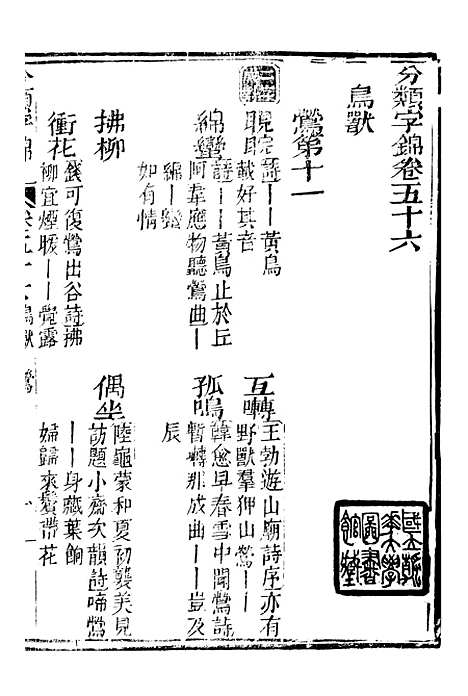 分類字錦卷五十六
鳥獸
鶯第十一
睍睆詩——黃鳥
載好其音
互囀王勃遊山廟詩序亦有
野獸羣狎山鶯——
綿蠻詩——黃鳥止於丘
阿韋應物聽鶯曲——
綿——蠻
如有情
孤鳴韓愈早春雪中聞鶯詩
暫囀那成曲——豈及
辰
拂柳
錢可復鶯出谷詩拂
柳宜煙暖——覺露
衝花
偶坐陸龜蒙和夏初襲美見
訪題小齋次韻詩啼鶯
——身藏葉餉
婦歸來鬢帶花